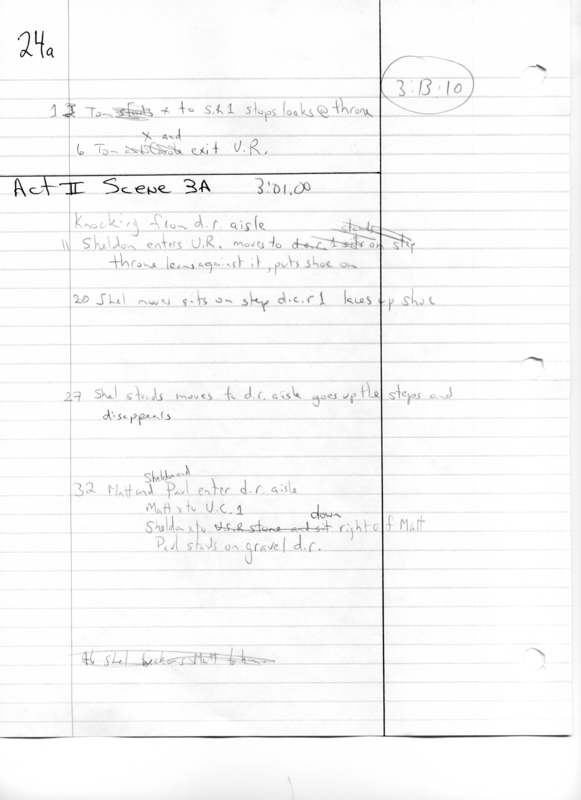 24a
3:13:10
1 Tom x to S.R 1 stops looks @ throne
x and
6 Tom exit U.R.
Act II Scene 3A 3:01.00
Knocking from d.r. aisle
stands
11 Sheldon enters U.R. moves to on step
throne leans against it, puts shoe on
20 Shel moves sits on step d.c.r 1 laces up shoe
27 Shel stands moves to d.r. aisle goes up the steps and
disappears
Sheldon and
32 Matt and Paul enter d.r. aisle
Matt x to U.C. 1
down
Sheldon x to U.S.R stone and sit right of Matt
Paul stands on gravel d.r.
Shel beckons Matt to